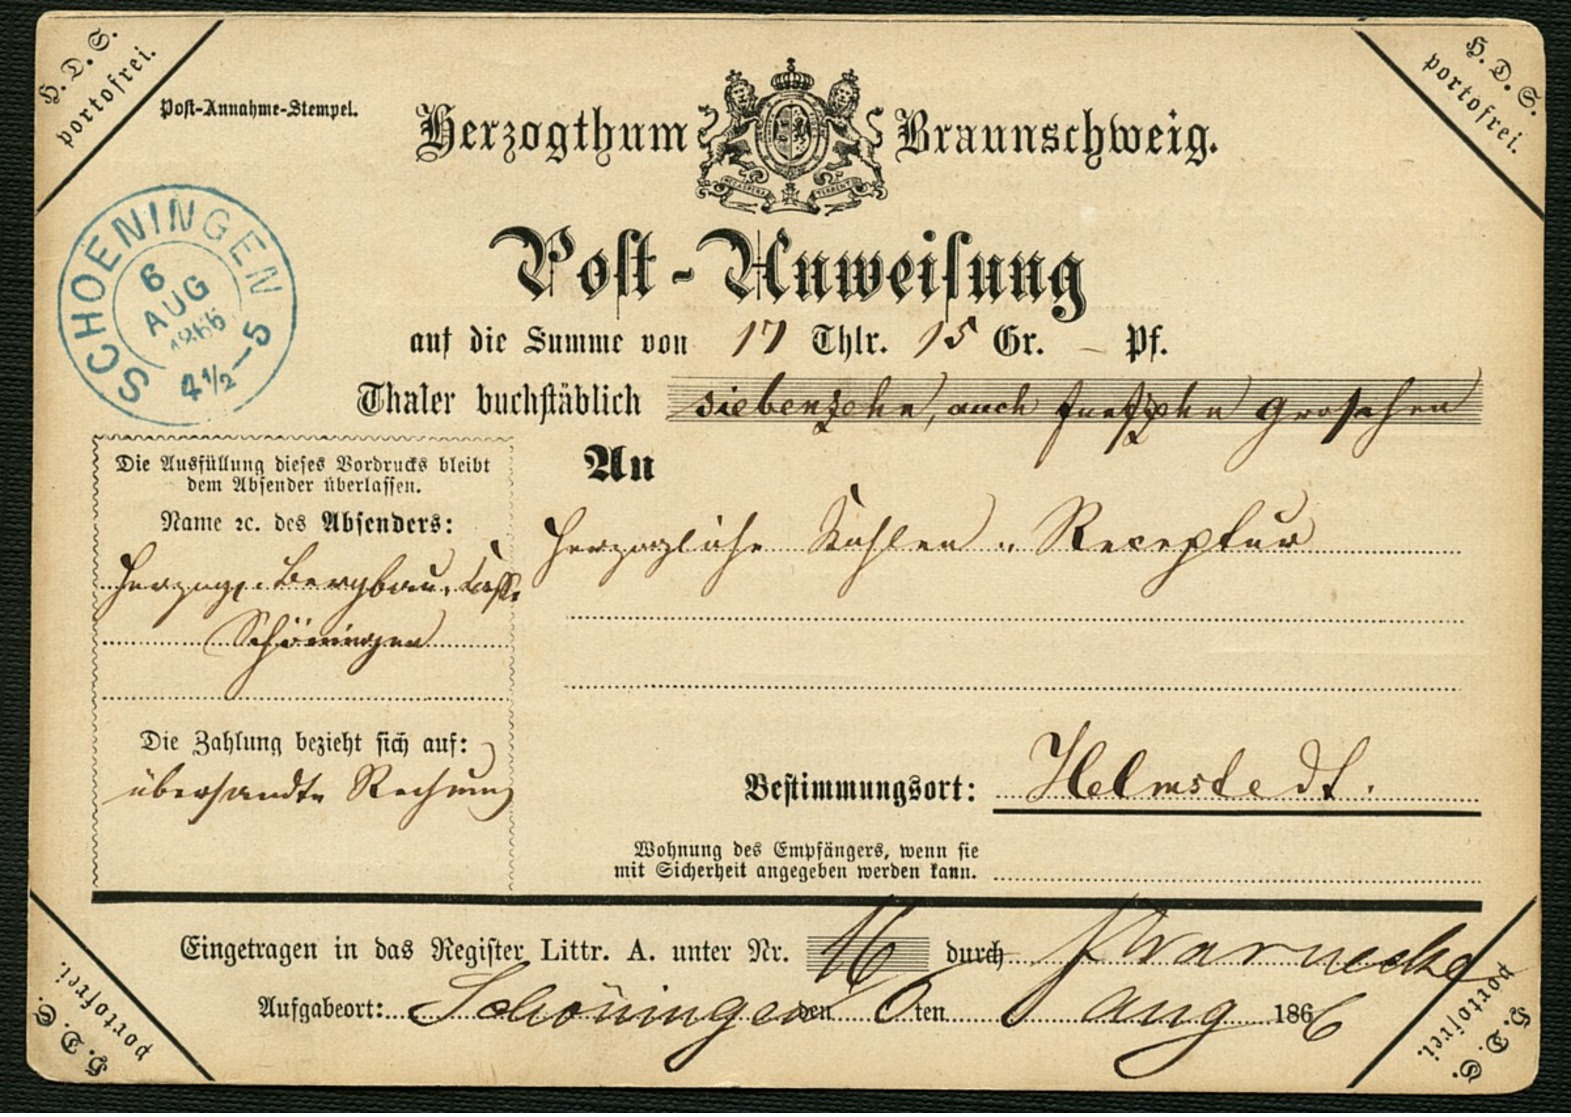 H. D. S.
portofrei.
H. D. S.
portofrei.
Post-Annahme-Stempel.
Herzogthum Braunschweig.
NEC ASPERA TERRENT
SCHOENINGEN
6
AUG
1866
4½—5
Post-Anweisung
auf die Summe von 17 Thlr. 15 Gr. — Pf.
Thaler buchstäblich siebenzehn, auch funfzehn Groschen
Die Ausfüllung dieses Vordrucks bleibt
dem Absender überlassen.
Name ꝛc. des Absenders:
Herzogl. Bergbau-Casse
Schöningen
An
Herzogliche Kohlen-Receptur
Die Zahlung bezieht sich auf:
übersandte Rechnung
Bestimmungsort: Helmstedt.
Wohnung des Empfängers, wenn sie
mit Sicherheit angegeben werden kann.
Eingetragen in das Register Littr. A. unter Nr. 16 durch Warnecke
Aufgabeort: Schöningen den 6ten Aug 1866
H. D. S.
portofrei.
H. D. S.
portofrei.